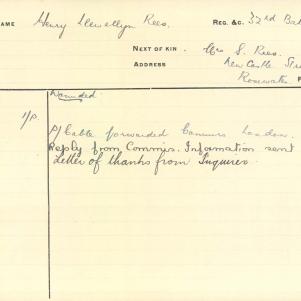 NAME Henry Llewellyn Rees. REG. &C. 32nd Bat
NEXT OF KIN. Mrs S. Rees.
ADDRESS New Castle Stre
Rosewater
Wounded.
1/P. P/Cable forwarded Commrs London.
Reply from Commrs. Information sent
Letter of thanks from Inquirer.